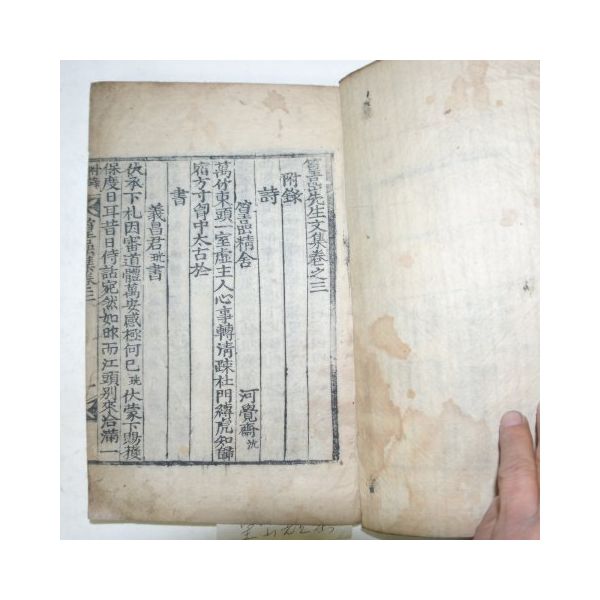 篁嵒先生文集卷之三
附錄
詩
篁嵒精舍
河覺齋沆
萬竹東頭一室虛主人心事轉清疎杜門縛虎知歸
宿方寸曾中太古於
書
義昌君珖書
伏承下札因審道體萬安感極何已珖伏蒙下賜僅
保度日耳昔日侍話宛然如昨而江頭別來洽滿一
附錄